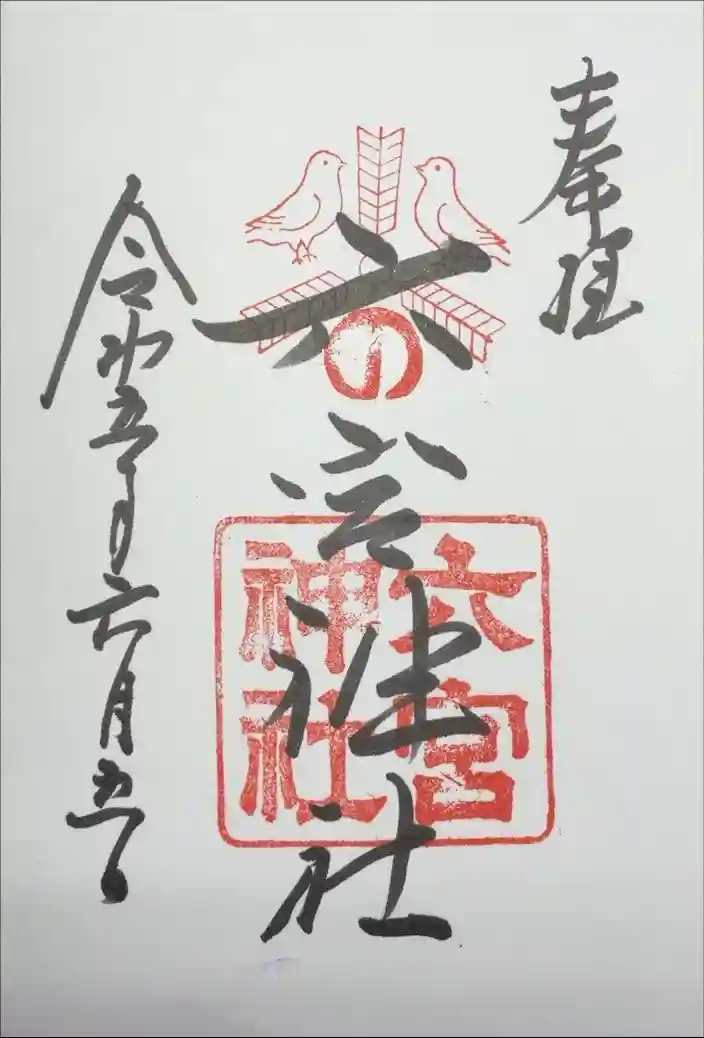 奉拝
六の宮神社
六宮
神社
令和五年六月五日